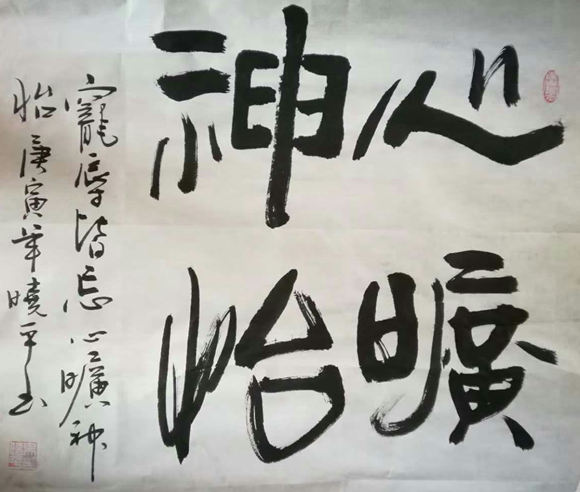 心曠
神怡
寵辱皆忘心曠神
怡庚寅年曉平书